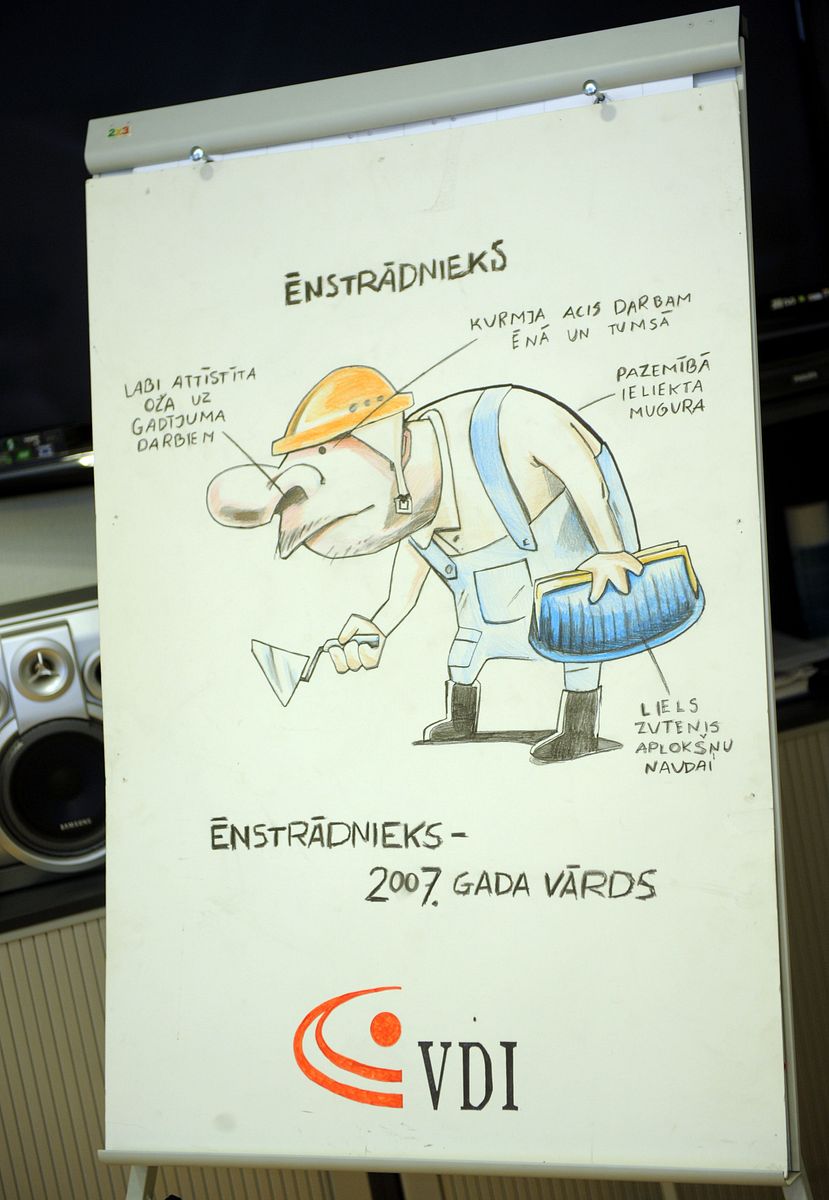 2x3
ĒNSTRĀDNIEKS
KURMJA ACIS DARBAM
ĒNĀ UN TUMSĀ
LABI ATTĪSTĪTA
OŽA UZ
GADĪJUMA
DARBIEM
PAZEMĪBĀ
IELIEKTA
MUGURA
LIELS
ZUTENIS
APLOKŠŅU
NAUDAI
ĒNSTRĀDNIEKS –
2007. GADA VĀRDS
VDI
SAMSUNG